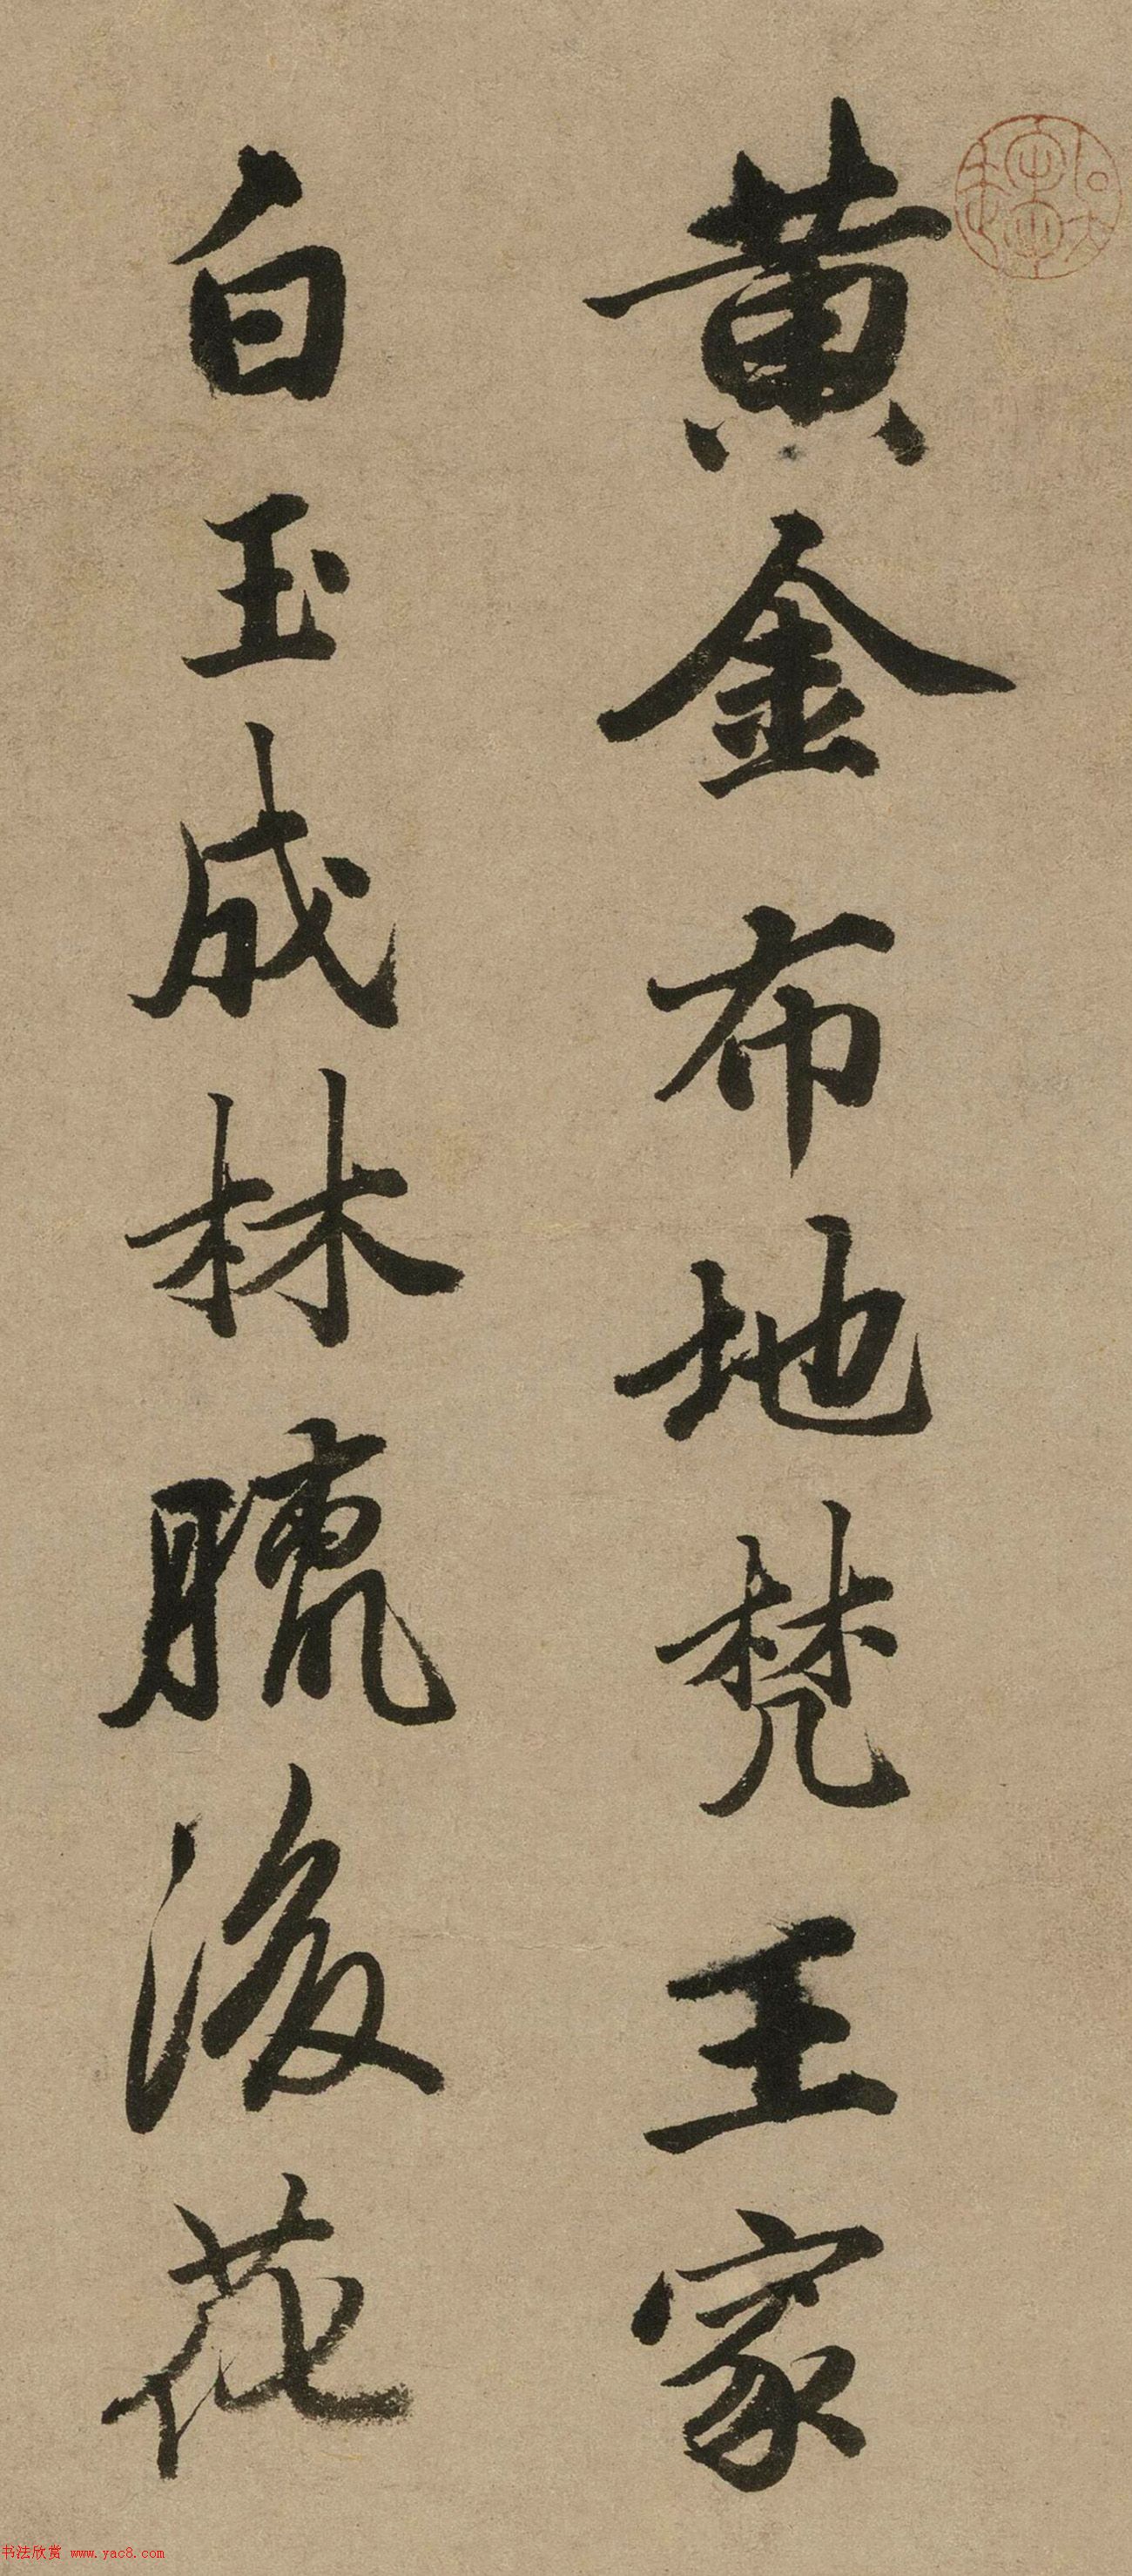 黄金布地梵王家
白玉成林臈後花
书法欣赏 www.yac8.com